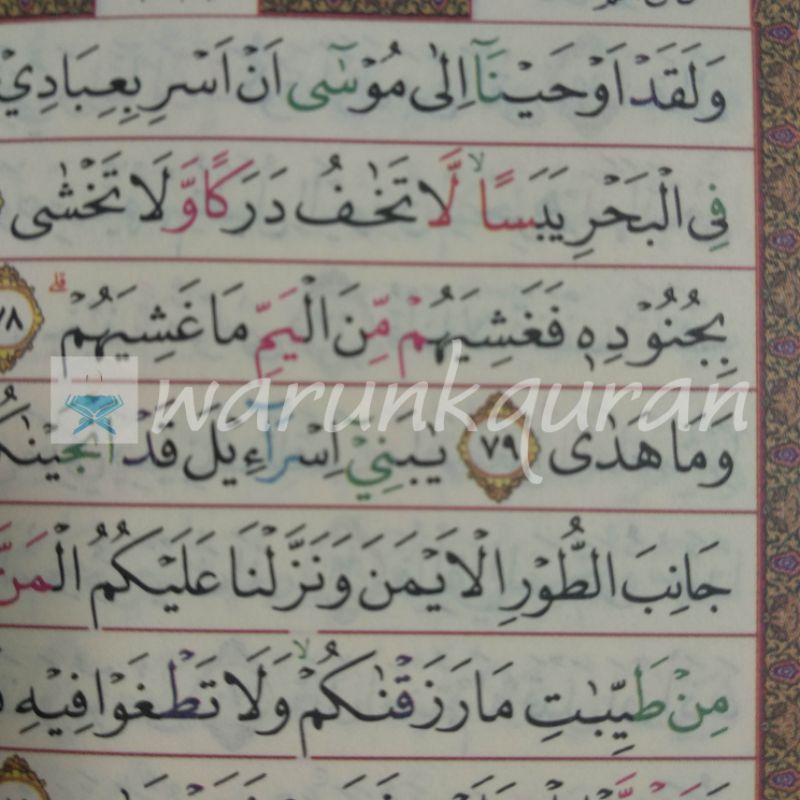 وَلَقَدْ اَوْحَيْنَآ اِلٰى مُوْسٰٓى اَنْ اَسْرِ بِعِبَادِيْ
فِى الْبَحْرِ يَبَسًاۙ لَّا تَخٰفُ دَرَكًا وَّلَا تَخْشٰى
بِجُنُوْدِهٖ فَغَشِيَهُمْ مِّنَ الْيَمِّ مَا غَشِيَهُمْ ۗ ٧٨
وَمَا هَدٰى ٧٩ يٰبَنِيْٓ اِسْرَاۤءِيْلَ قَدْ
warunkquran
جَانِبَ الطُّوْرِ الْاَيْمَنَ وَنَزَّلْنَا عَلَيْكُمُ
مِنْ طَيِّبٰتِ مَا رَزَقْنٰكُمْۙ وَلَا تَطْغَوْا فِيْهِ